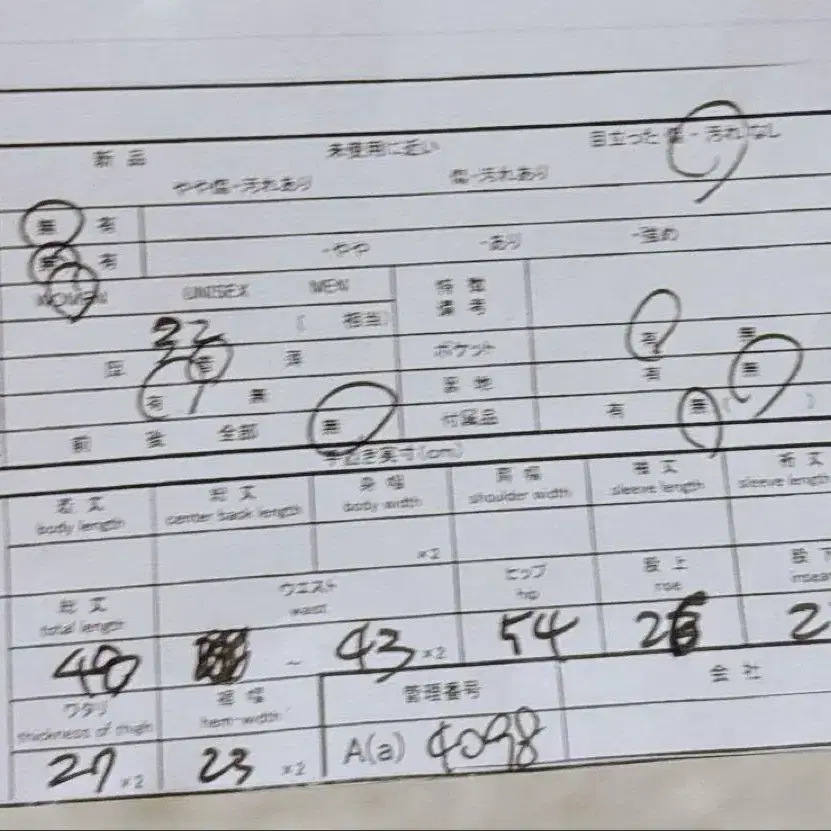 新品 未使用に近い 目立った傷・汚れなし
やや傷・汚れあり 傷・汚れあり
無 有
無 有 -やや -あり -強め
WOMEN UNISEX MEN 特記
備考
( 相当)
厚 普 薄 ポケット 有 無
有 無 裏地 有 無
前 後 全部 無 付属品 有 無 ( )
平置き実寸(cm)
着丈 総丈 身幅 肩幅 袖丈 裄丈
body length center back length body width shoulder width sleeve length sleeve length
×2
総丈 ウエスト ヒップ 股上 股下
total length waist hip rise inseam
48 ~ 43 ×2 54 2
ワタリ 裾幅 管理番号 会社
thickness of thigh hem width
27 ×2 23 ×2 A(a) 4098